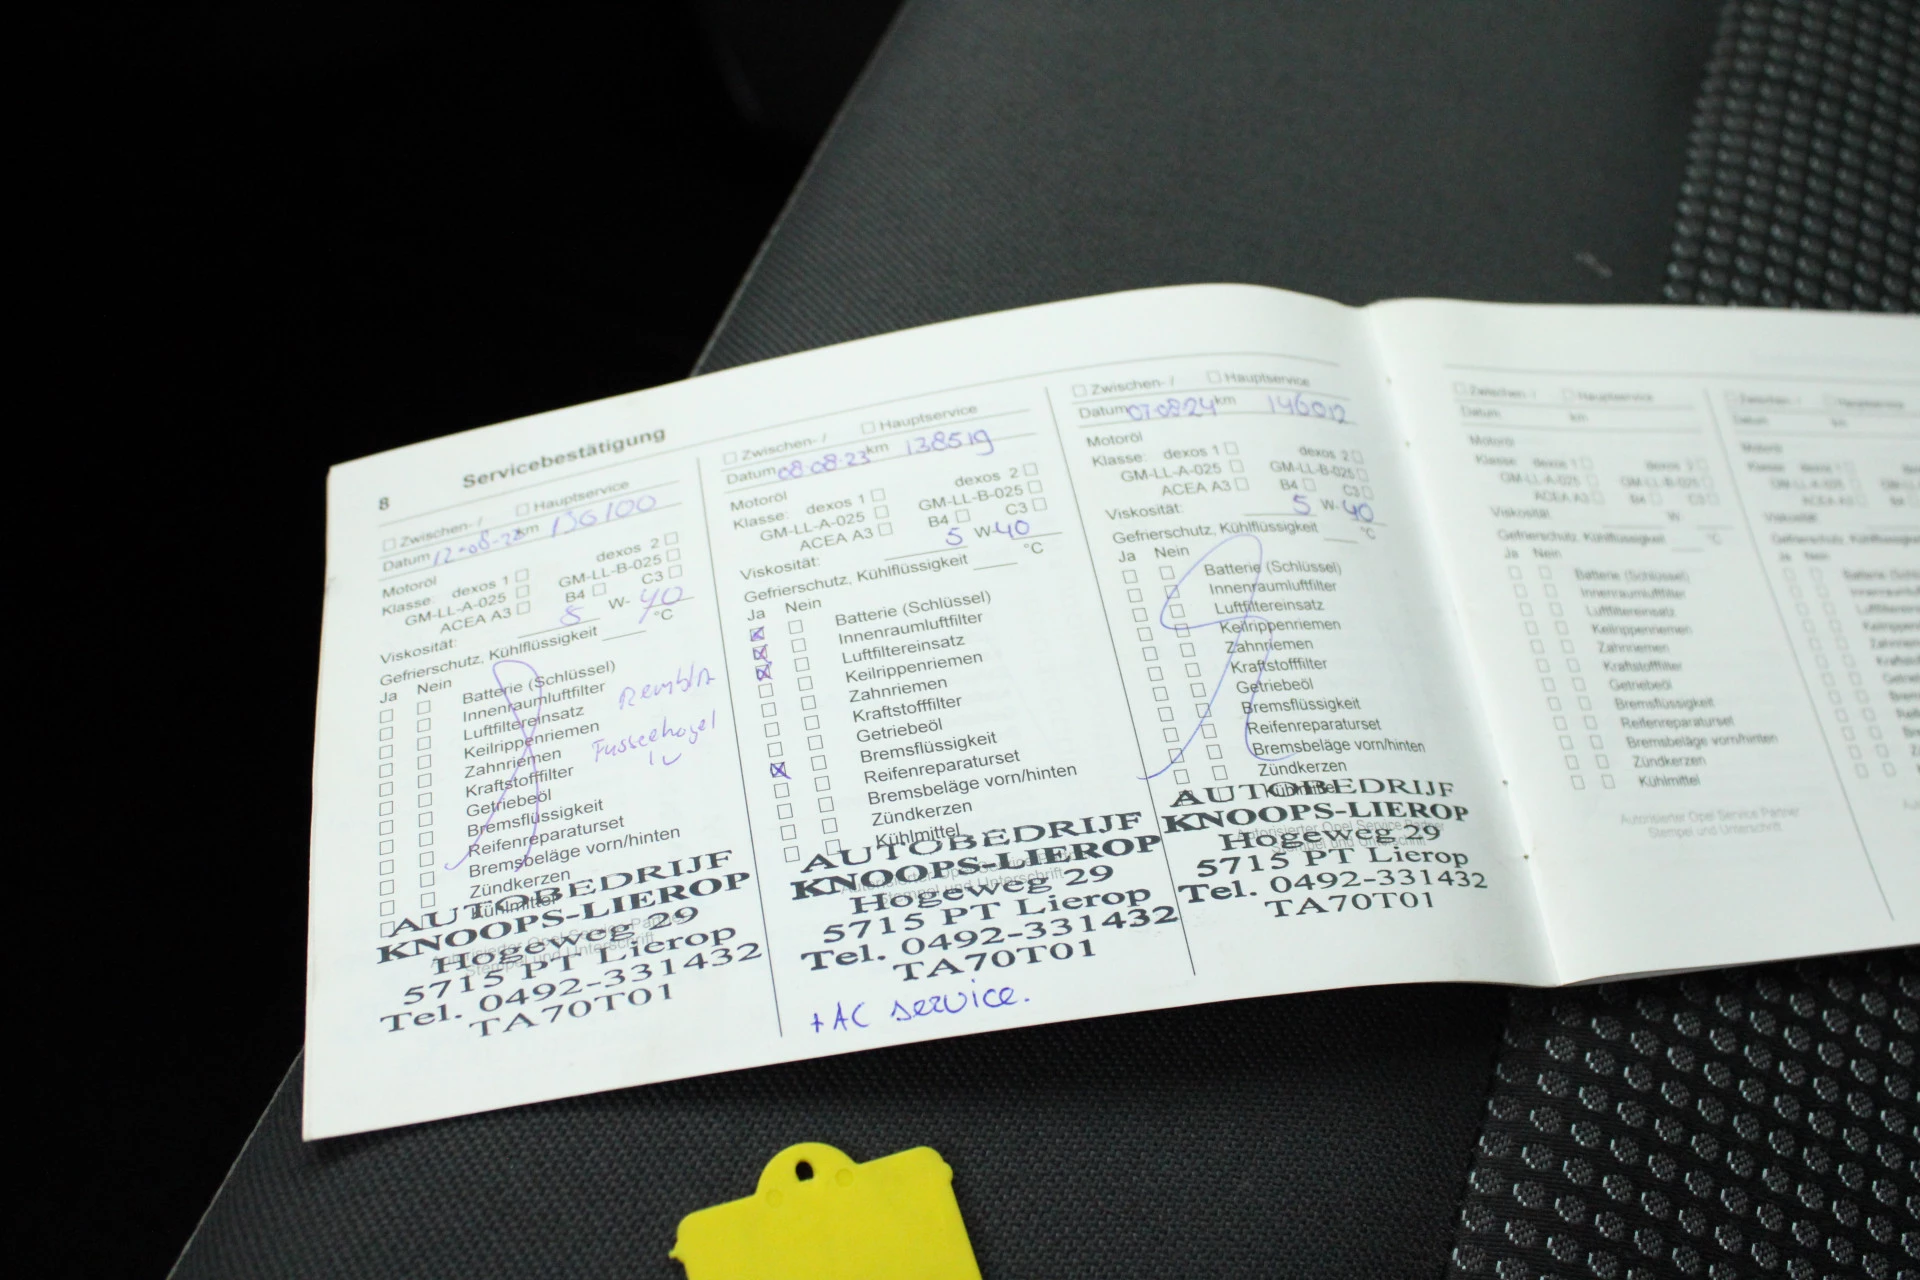 8 Servicebestätigung
☐ Zwischen- / ☐ Hauptservice
Datum 12-08-22 km 130100
Motoröl
Klasse: dexos 1 ☐ dexos 2 ☐
GM-LL-A-025 ☐ GM-LL-B-025 ☐
ACEA A3 ☐ B4 ☐ C3 ☐
Viskosität: 5 W- 40
Gefrierschutz, Kühlflüssigkeit ____ °C
Ja Nein
☐ ☐ Batterie (Schlüssel)
☐ ☐ Innenraumluftfilter
☐ ☐ Luftfiltereinsatz
☐ ☐ Keilrippenriemen
☐ ☐ Zahnriemen
☐ ☐ Kraftstofffilter
☐ ☐ Getriebeöl
☐ ☐ Bremsflüssigkeit
☐ ☐ Reifenreparaturset
☐ ☐ Bremsbeläge vorn/hinten
☐ ☐ Zündkerzen
☐ ☐ Kühlmittel
Autorisierter Opel Service Partner
Stempel und Unterschrift
AUTOBEDRIJF
KNOOPS-LIEROP
Hogeweg 29
5715 PT Lierop
Tel. 0492-331432
TA70T01
☐ Zwischen- / ☐ Hauptservice
Datum 08-08-23 km 138519
Motoröl
Klasse: dexos 1 ☐ dexos 2 ☐
GM-LL-A-025 ☐ GM-LL-B-025 ☐
ACEA A3 ☐ B4 ☐ C3 ☐
Viskosität: 5 W- 40
Gefrierschutz, Kühlflüssigkeit ____ °C
Ja Nein
☒ ☐ Batterie (Schlüssel)
☒ ☐ Innenraumluftfilter
☒ ☐ Luftfiltereinsatz
☐ ☐ Keilrippenriemen
☐ ☐ Zahnriemen
☐ ☐ Kraftstofffilter
☐ ☐ Getriebeöl
☒ ☐ Bremsflüssigkeit
☐ ☐ Reifenreparaturset
☐ ☐ Bremsbeläge vorn/hinten
☐ ☐ Zündkerzen
☐ ☐ Kühlmittel
Autorisierter Opel Service Partner
Stempel und Unterschrift
AUTOBEDRIJF
KNOOPS-LIEROP
Hogeweg 29
5715 PT Lierop
Tel. 0492-331432
TA70T01
+ AC service.
☐ Zwischen- / ☐ Hauptservice
Datum 07-08-24 km 146012
Motoröl
Klasse: dexos 1 ☐ dexos 2 ☐
GM-LL-A-025 ☐ GM-LL-B-025 ☐
ACEA A3 ☐ B4 ☐ C3 ☐
Viskosität: 5 W- 40
Gefrierschutz, Kühlflüssigkeit ____ °C
Ja Nein
☐ ☐ Batterie (Schlüssel)
☐ ☐ Innenraumluftfilter
☐ ☐ Luftfiltereinsatz
☐ ☐ Keilrippenriemen
☐ ☐ Zahnriemen
☐ ☐ Kraftstofffilter
☐ ☐ Getriebeöl
☐ ☐ Bremsflüssigkeit
☐ ☐ Reifenreparaturset
☐ ☐ Bremsbeläge vorn/hinten
☐ ☐ Zündkerzen
☐ ☐ Kühlmittel
Autorisierter Opel Service Partner
Stempel und Unterschrift
AUTOBEDRIJF
KNOOPS-LIEROP
Hogeweg 29
5715 PT Lierop
Tel. 0492-331432
TA70T01
☐ Zwischen- / ☐ Hauptservice
Datum km
Motoröl
Klasse: dexos 1 ☐ dexos 2 ☐
GM-LL-A-025 ☐ GM-LL-B-025 ☐
ACEA A3 ☐ B4 ☐ C3 ☐
Viskosität: W-
Gefrierschutz, Kühlflüssigkeit ____ °C
Ja Nein
☐ ☐ Batterie (Schlüssel)
☐ ☐ Innenraumluftfilter
☐ ☐ Luftfiltereinsatz
☐ ☐ Keilrippenriemen
☐ ☐ Zahnriemen
☐ ☐ Kraftstofffilter
☐ ☐ Getriebeöl
☐ ☐ Bremsflüssigkeit
☐ ☐ Reifenreparaturset
☐ ☐ Bremsbeläge vorn/hinten
☐ ☐ Zündkerzen
☐ ☐ Kühlmittel
Autorisierter Opel Service Partner
Stempel und Unterschrift
☐ Zwischen- / ☐ Hauptservice
Datum km
Motoröl